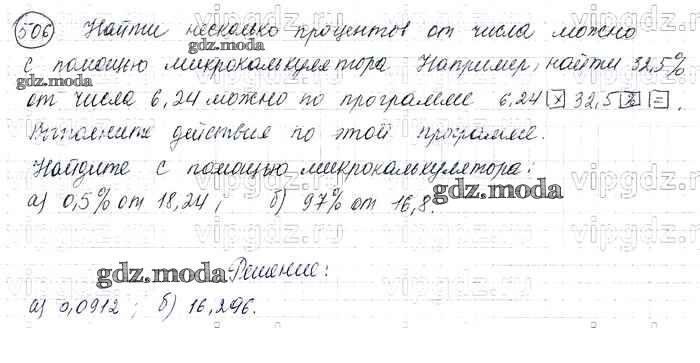 506 Найти несколько процентов от числа можно
с помощью микрокалькулятора Например, найти 32,5%
от числа 6,24 можно по программе 6,24 × 32,5 % = .
Выполните действия по этой программе.
Найдите с помощью микрокалькулятора:
а) 0,5% от 18,24; б) 97% от 16,8.
Решение:
а) 0,0912; б) 16,296.
gdz.moda
gdz.moda
gdz.moda
gdz.moda
vipgdz.ru
vipgdz.ru
vipgdz.ru